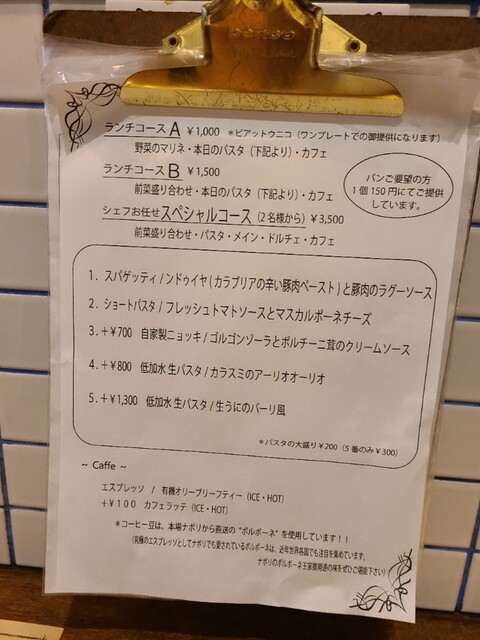 ランチコース A ￥1,000 ＊ピアットウニコ（ワンプレートでの御提供になります）
野菜のマリネ・本日のパスタ（下記より）・カフェ
ランチコース B ￥1,500
前菜盛り合わせ・本日のパスタ（下記より）・カフェ
シェフお任せスペシャルコース（2名様から）￥3,500
前菜盛り合わせ・パスタ・メイン・ドルチェ・カフェ
パンご要望の方
1個150円にてご提供
しています。
1．スパゲッティ/ンドゥイヤ(カラブリアの辛い豚肉ペースト)と豚肉のラグーソース
2．ショートパスタ/フレッシュトマトソースとマスカルポーネチーズ
3．+￥700 自家製ニョッキ/ゴルゴンゾーラとポルチーニ茸のクリームソース
4．+￥800 低加水生パスタ/カラスミのアーリオオーリオ
5．+￥1,300 低加水生パスタ/生うにのバーリ風
＊パスタの大盛り￥200（5番のみ￥300）
～ Caffe ～
エスプレッソ / 有機オリーブリーフティー（ICE・HOT）
+￥100 カフェラッテ（ICE・HOT）
＊コーヒー豆は、本場ナポリから直送の“ボルボーネ”を使用しています！！
（究極のエスプレッソとしてナポリでも愛されているボルボーネは、近年世界各国でも注目を集めています。
ナポリのボルボーネ王家御用達の味をぜひご堪能下さい）